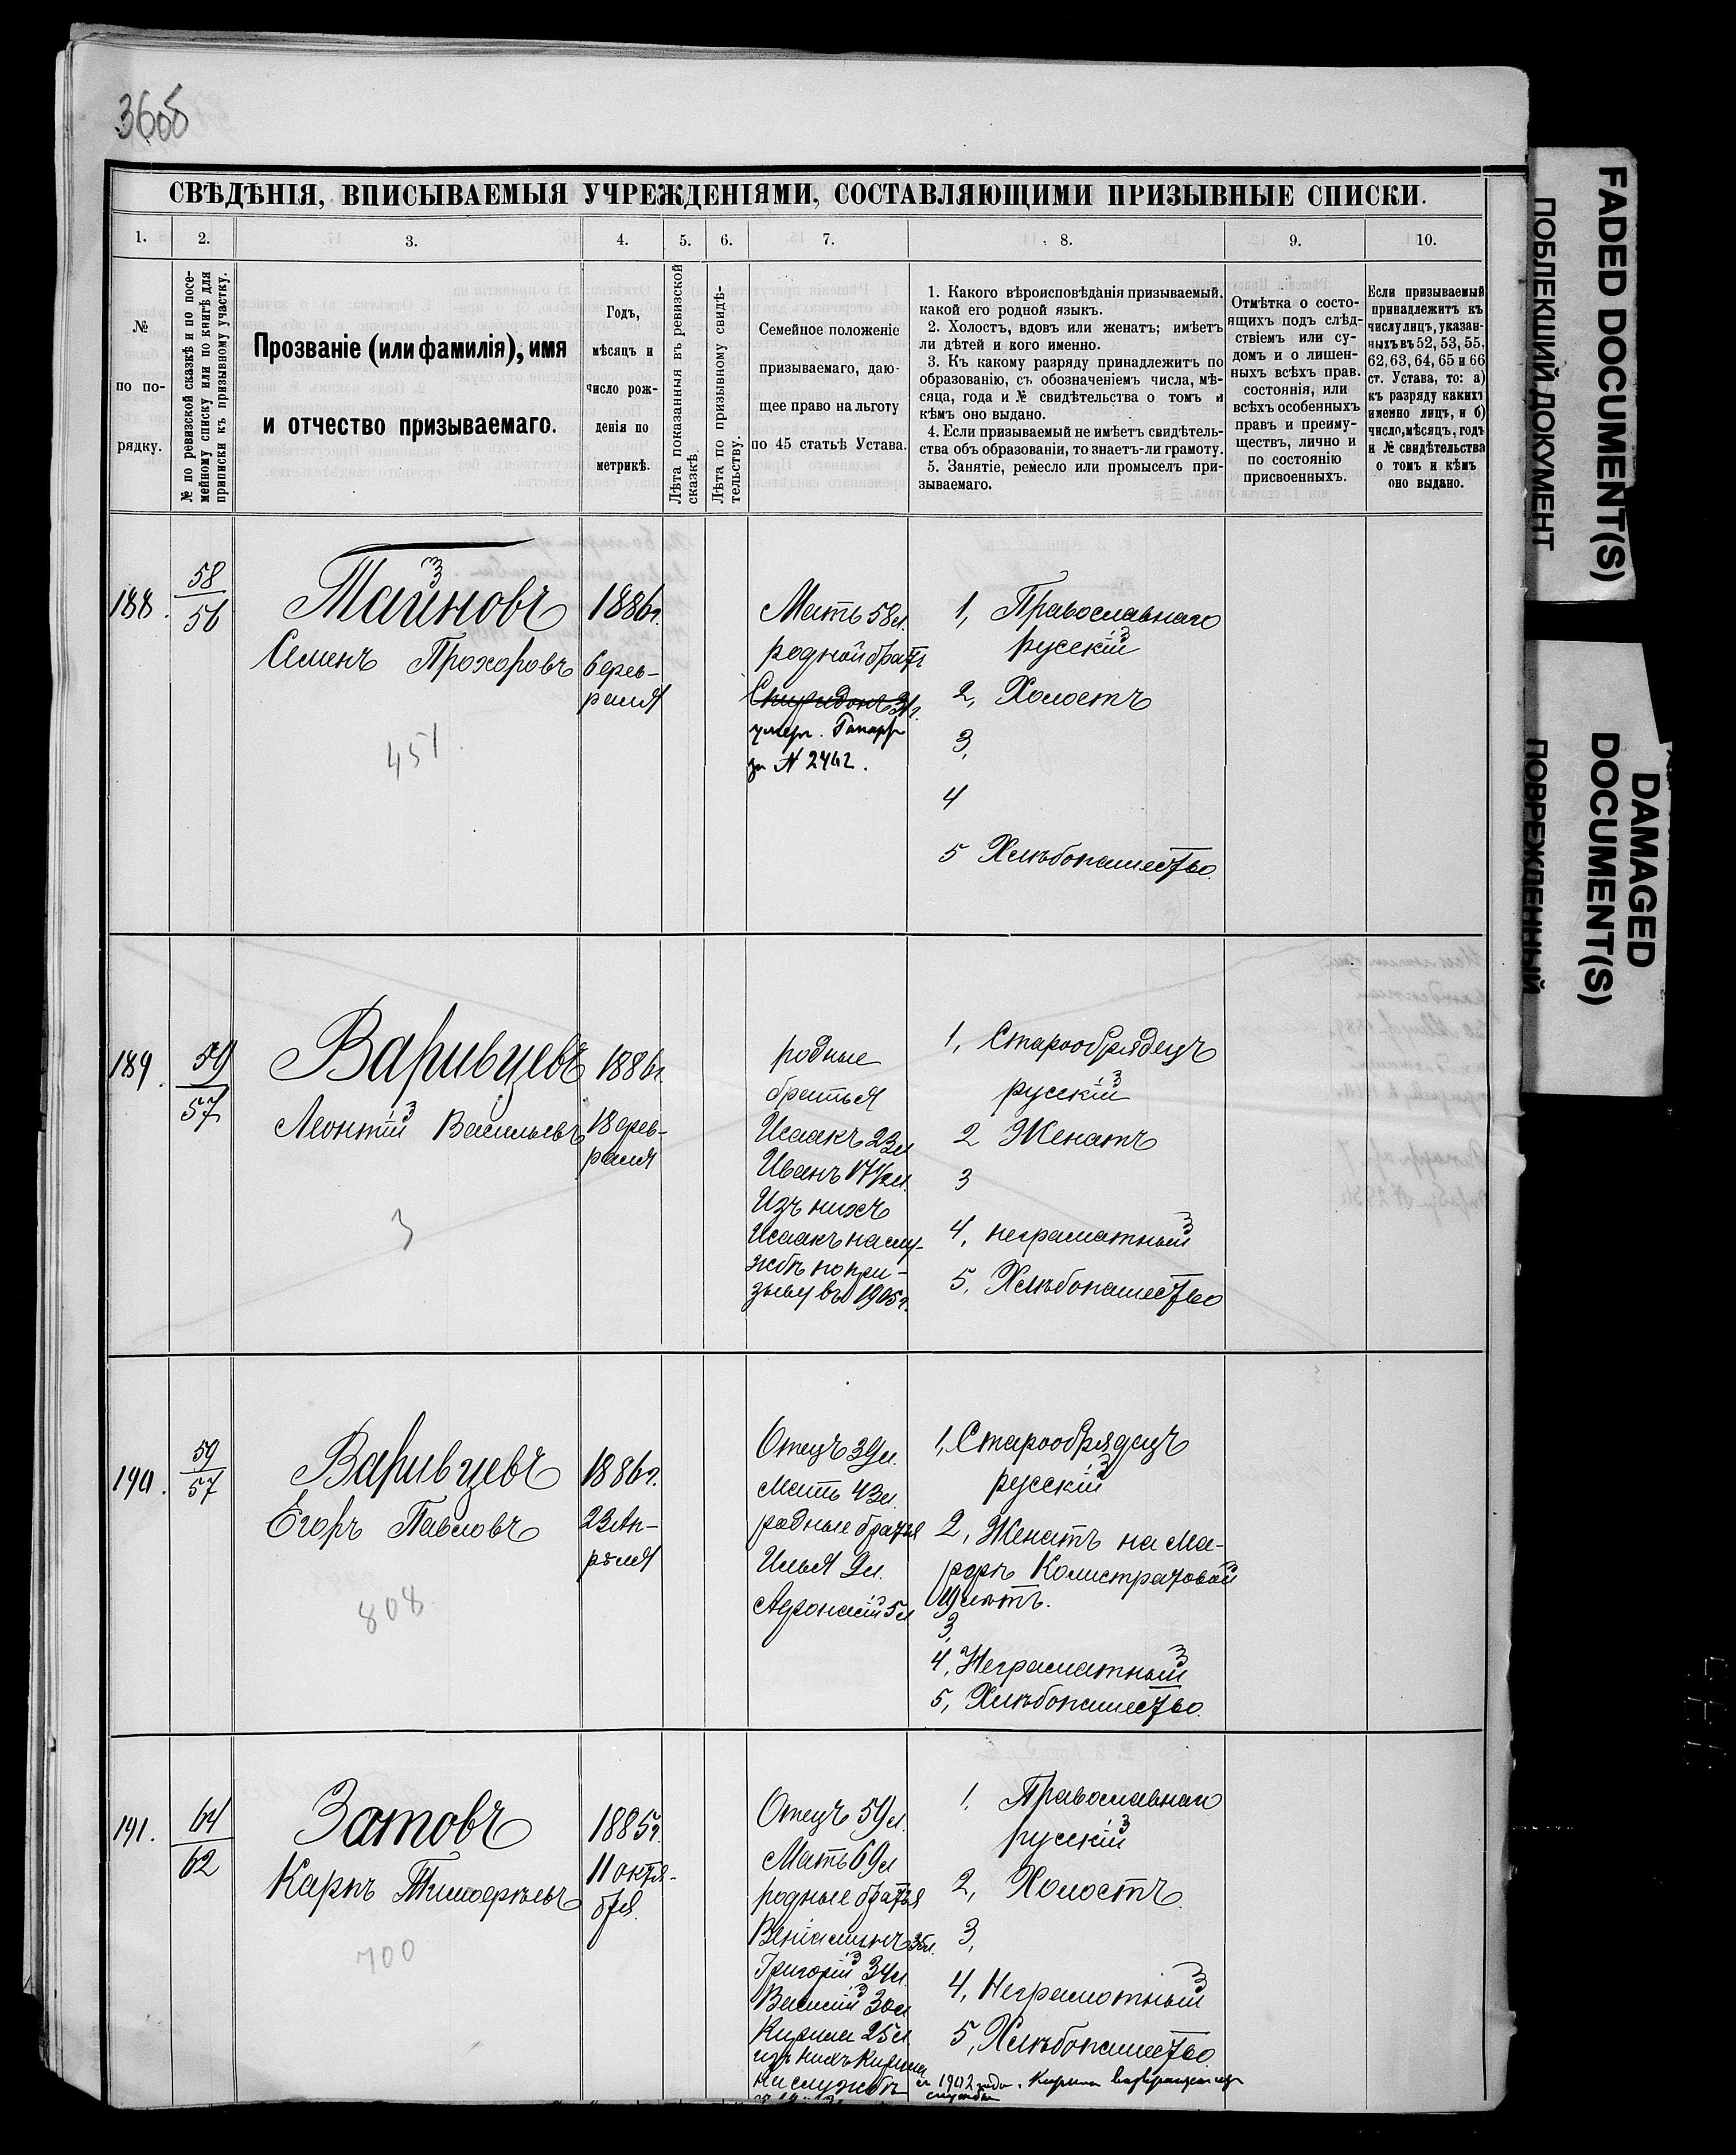 СВѢДѢНІЯ, ВПИСЫВАЕМЫЯ УЧРЕЖДЕНІЯМИ, СОСТАВЛЯЮЩИМИ ПРИЗЫВНЫЕ СПИСКИ.
1. 2. 3. 4. 5. 6. 7. 8. 9. 10.
№
по по-
рядку.
№ по ревизской сказкѣ и по посе-
мейному списку или по книгѣ для
приписки къ призывному участку.
Прозваніе (или фамилія), имя
и отчество призываемаго.
Годъ,
мѣсяцъ и
число рож-
денія по
метрикѣ.
Лѣта показанныя въ ревизской
сказкѣ.
Лѣта по призывному свидѣ-
тельству.
Семейное положеніе
призываемаго, даю-
щее право на льготу
по 45 статьѣ Устава.
1. Какого вѣроисповѣданія призываемый,
какой его родной языкъ.
2. Холостъ, вдовъ или женатъ; имѣетъ
ли дѣтей и кого именно.
3. Къ какому разряду принадлежитъ по
образованію, съ обозначеніемъ числа, мѣ-
сяца, года и № свидѣтельства о томъ и
кѣмъ оно выдано.
4. Если призываемый не имѣетъ свидѣтель-
ства объ образованіи, то знаетъ-ли грамоту.
5. Занятіе, ремесло или промыселъ при-
зываемаго.
Отмѣтка о состо-
ящихъ подъ слѣд-
ствіемъ или су-
домъ и о лишен-
ныхъ всѣхъ прав.
состоянія, или
всѣхъ особенныхъ
правъ и преиму-
ществъ, лично и
по состоянію
присвоенныхъ.
Если призываемый
принадлежитъ къ
числу лицъ, указан-
ныхъ въ 52, 53, 55,
62, 63, 64, 65 и 66
ст. Устава, то: а)
къ разряду какихъ
именно лицъ, и б)
число, мѣсяцъ, годъ
и № свидѣтельства
о томъ и кѣмъ
оно выдано.
188.
58
56
Тайновъ
Семенъ Прохоровъ
451
1886г.
6 фев-
раля
Мать 58л.
родной братъ
Спиридонъ 31г.
умер.
за № 2442.
1, Православнаго
русскій
2, Холостъ
3,
4
5 Хлѣбопашество.
189.
59
57
Варивцевъ
Леонтій Васильевъ
3
1886г.
18 фев-
раля
родные
братья
Исаакъ 23л
Иванъ 17½л.
Изъ нихъ
Исаакъ на слу-
жбѣ по при-
зыву въ 1905г.
1, Старообрядецъ
русскій
2 Женатъ
3
4, неграматный
5, Хлѣбопашество
190.
59
57
Варивцевъ
Егоръ Павловъ
808
1886г.
23 Ап-
рѣля
Отецъ 39л.
Мать 43л.
родные братья
Илья 9л.
Афонасій 5л
1, Старообрядецъ
русскій
2, Женатъ на Ма-
рфѣ Калистратовой
19 лѣтъ.
3,
4, Неграматный
5, Хлѣбопашество.
191.
64
62
Затовъ
Карпъ Тимофѣевъ
700
1885г.
11 октя-
бря.
Отецъ 59л.
Мать 69л
родные братья
Веніаминъ 36л.
Григорій 34л.
Василій 30л
Кирила 25л
изъ нихъ Кирила
на службѣ
1. Православнаго
русскій
2, Холостъ.
3,
4, Неграмотный
5, Хлѣбопашество.
съ 1902 года. Кирила
службы
FADED DOCUMENT(S)
ПОБЛЕКШИЙ ДОКУМЕНТ
DAMAGED
DOCUMENT(S)
ПОВРЕЖДЕННЫЙ